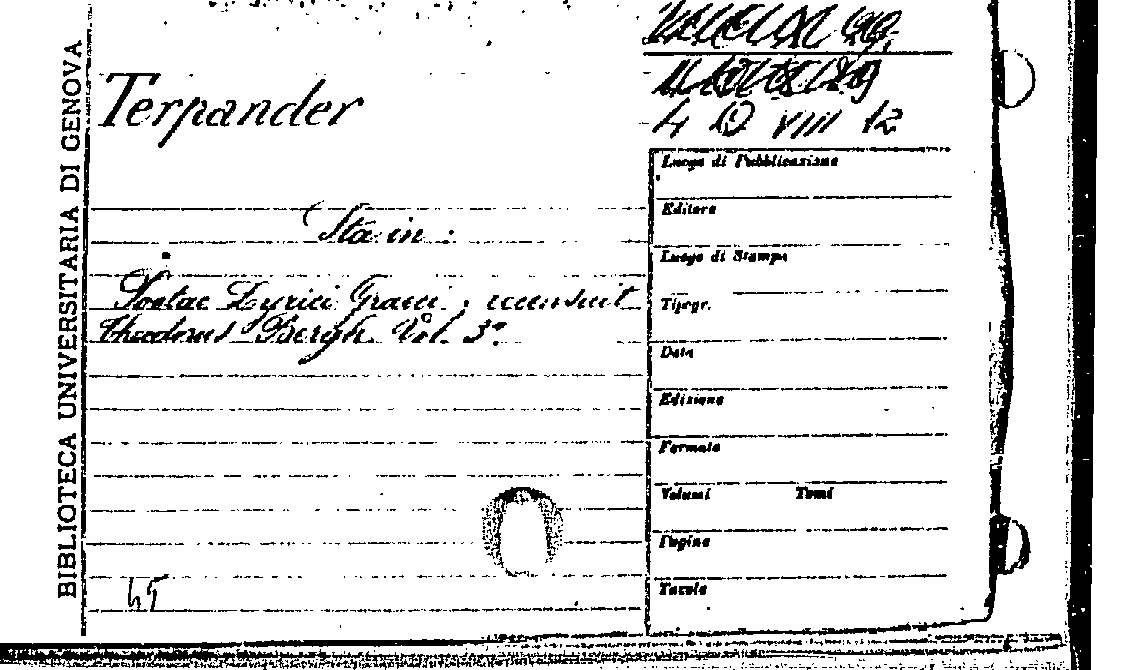 BIBLIOTECA UNIVERSITARIA DI GENOVA
4 Q VIII 12
Terpander
Sta in :
Poetae Lyrici Graeci, recensuit
Theodorus Bergk. Vol. 3º
Luogo di Pubblicazione
Editore
Luogo di Stampa
Tipogr.
Data
Edizione
Formato
Volumi Tomi
Pagine
Tavole